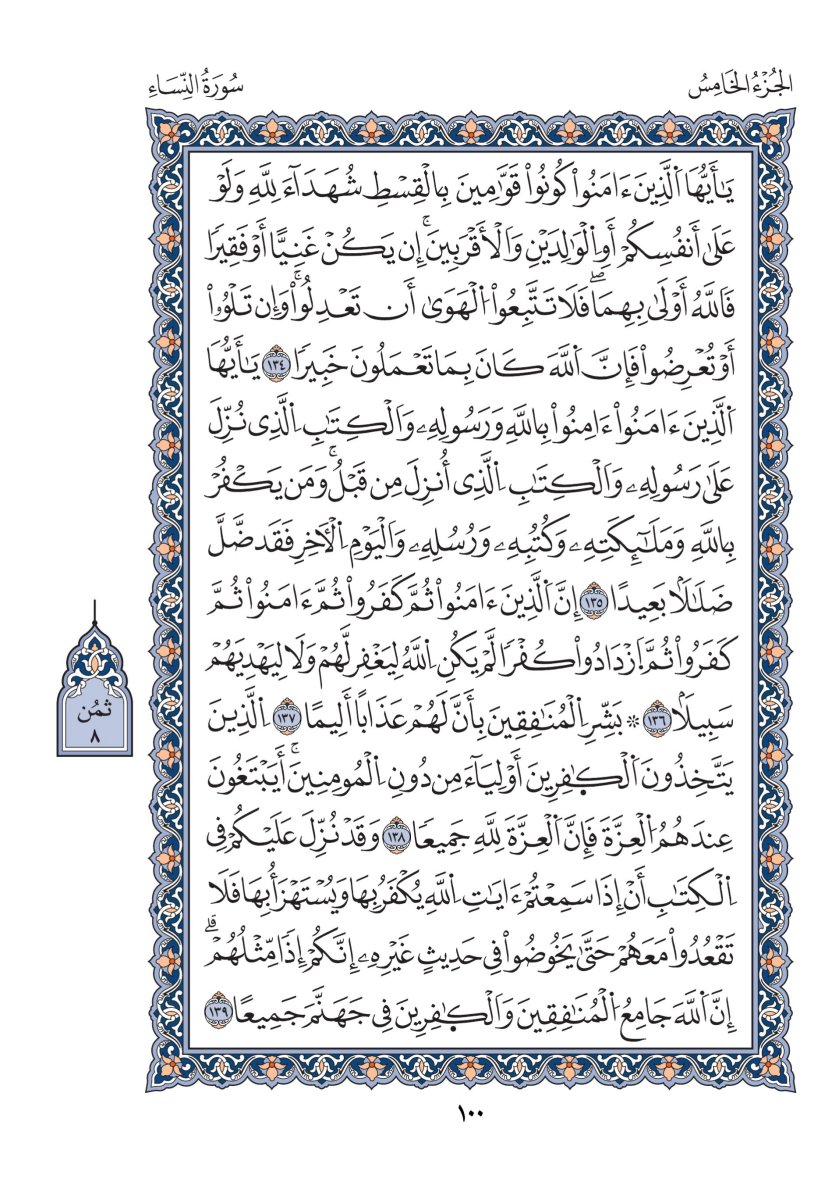 الجُزْءُ الخَامِسُ
سُورَةُ النِّسَاءِ
يَٰٓأَيُّهَا اَ۬لذِينَ ءَامَنُواْ كُونُواْ قَوَّٰمِينَ بِالْقِسْطِ شُهَدَآءَ لِلهِ وَلَوْ
عَلَىٰٓ أَنفُسِكُمُۥٓ أَوِ اِ۬لْوَٰلِدَيْنِ وَالْأَقْرَبِينَۚ إِنْ يَّكُنْ غَنِيًّا أَوْ فَقِيرًا
فَاللَّهُ أَوْلَىٰ بِهِمَاۖ فَلَا تَتَّبِعُواْ اُ۬لْهَوَىٰٓ أَن تَعْدِلُواْۚ وَإِن تَلْوُۥٓاْ
أَوْ تُعْرِضُواْ فَإِنَّ اَ۬للَّهَ كَانَ بِمَا تَعْمَلُونَ خَبِيرًا ١٣٤ يَٰٓأَيُّهَا
اَ۬لذِينَ ءَامَنُوٓاْ ءَامِنُواْ بِاللَّهِ وَرَسُولِهِۦ وَالْكِتَٰبِ اِ۬لذِى نُزِّلَ
عَلَىٰ رَسُولِهِۦ وَالْكِتَٰبِ اِ۬لذِىٓ أُنزِلَ مِن قَبْلُۚ وَمَنْ يَّكْفُرْ
بِاللَّهِ وَمَلَٰٓئِكَتِهِۦ وَكُتُبِهِۦ وَرُسُلِهِۦ وَالْيَوْمِ اِ۬لْأٓخِرِ فَقَد ضَّلَّ
ضَلَٰلًا بَعِيدًا ١٣٥ إِنَّ اَ۬لذِينَ ءَامَنُواْ ثُمَّ كَفَرُواْ ثُمَّ ءَامَنُواْ ثُمَّ
كَفَرُواْ ثُمَّ اَ۪زْدَادُواْ كُفْرًا لَّمْ يَكُنِ اِ۬للَّهُ لِيَغْفِرَ لَهُمْ وَلَا لِيَهْدِيَهُمْ
سَبِيلًا ١٣٦ ۞ بَشِّرِ اِ۬لْمُنَٰفِقِينَ بِأَنَّ لَهُمْ عَذَابًا أَلِيمًا ١٣٧ اِ۬لذِينَ
يَتَّخِذُونَ اَ۬لْكٰ۪فِرِينَ أَوْلِيَآءَ مِن دُونِ اِ۬لْمُومِنِينَۚ أَيَبْتَغُونَ
عِندَهُمُ اُ۬لْعِزَّةَ فَإِنَّ اَ۬لْعِزَّةَ لِلهِ جَمِيعًا ١٣٨ وَقَدْ نُزِّلَ عَلَيْكُمْ فِى
اِ۬لْكِتَٰبِ أَنِ اِذَا سَمِعْتُمُۥٓ ءَايَٰتِ اِ۬للَّهِ يُكْفَرُ بِهَا وَيُسْتَهْزَأُ بِهَا فَلَا
تَقْعُدُواْ مَعَهُمْ حَتَّىٰ يَخُوضُواْ فِى حَدِيثٍ غَيْرِهِۦٓ إِنَّكُمُۥٓ إِذًا مِّثْلُهُمُۥٓۗ
إِنَّ اَ۬للَّهَ جَامِعُ اُ۬لْمُنَٰفِقِينَ وَالْكٰ۪فِرِينَ فِى جَهَنَّمَ جَمِيعًا ١٣٩
ثُمُن
٨
١٠٠